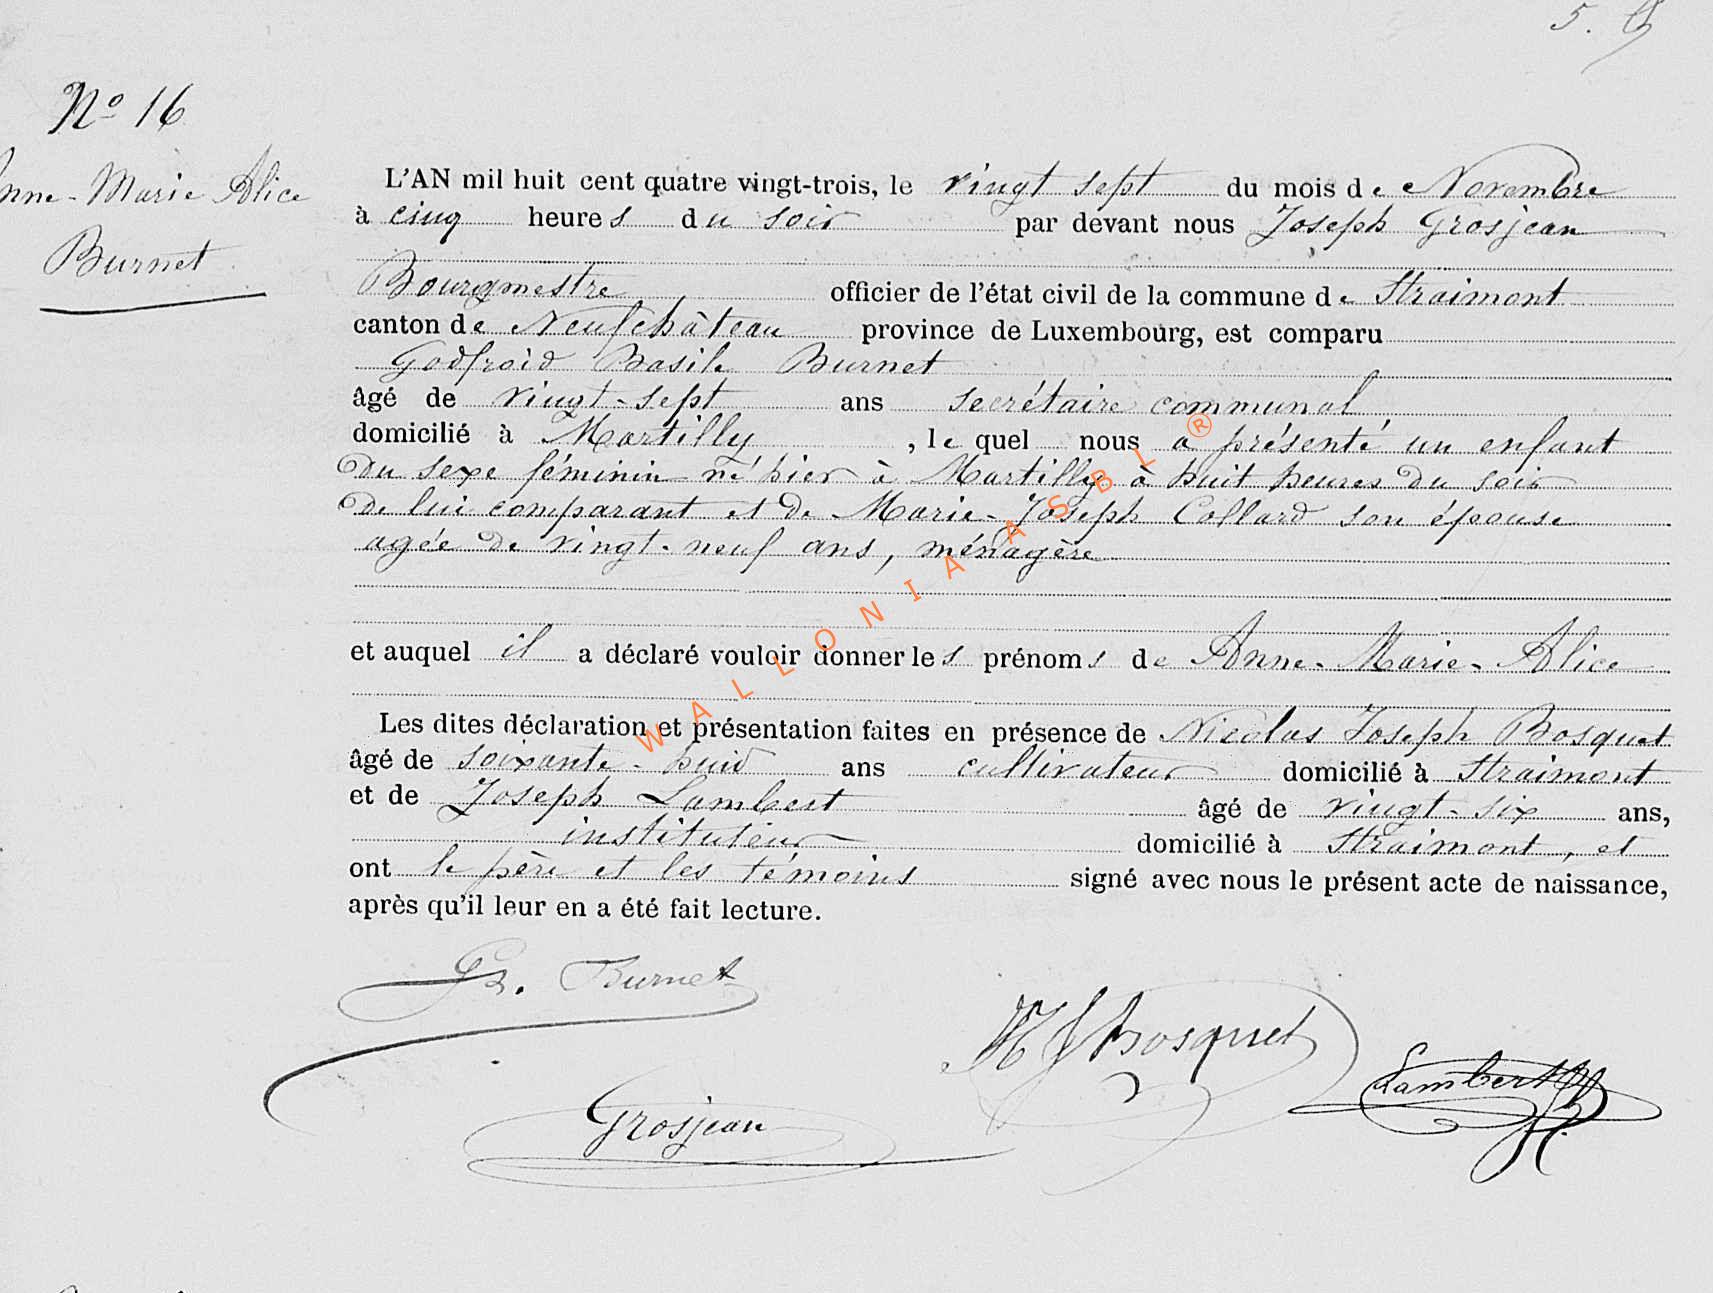 5.
Nº 16
Anne-Marie Alice
Burnet
L'AN mil huit cent quatre vingt-trois, le vingt sept du mois de Novembre
à cinq heures du soir par devant nous Joseph Grosjean
Bourgmestre officier de l'état civil de la commune de Straimont
canton de Neufchâteau province de Luxembourg, est comparu
Godfroid Basile Burnet
âgé de vingt-sept ans secrétaire communal
domicilié à Martilly, lequel nous a présenté un enfant
du sexe féminin né hier à Martilly à huit heures du soir
de lui comparant et de Marie-Joseph Collard son épouse
agée de vingt-neuf ans, ménagère
et auquel il a déclaré vouloir donner les prénoms de Anne-Marie-Alice
Les dites déclaration et présentation faites en présence de Nicolas Joseph Bosquet
âgé de soixante-huit ans cultivateur domicilié à Straimont
et de Joseph Lambert âgé de vingt-six ans,
instituteur domicilié à Straimont, et
ont le père et les témoins signé avec nous le présent acte de naissance,
après qu'il leur en a été fait lecture.
Burnet
N J Bosquet
Lambert
Grosjean
WALLONIA ASBL ®